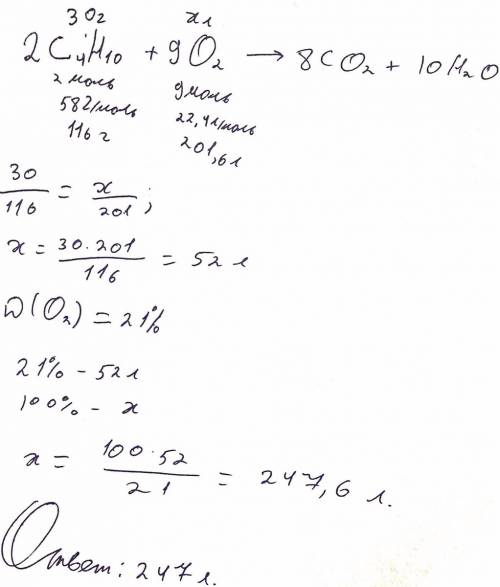 30г x л
2C₄H₁₀ + 9O₂ → 8CO₂ + 10H₂O
2 моль 9 моль
58 г/моль 22,4 л/моль
116 г 201,6 л
30/116 = x/201 ;
x = 30·201/116 = 52 л
ω(O₂) = 21%
21% - 52 л
100% - x
x = 100·52/21 = 247,6 л.
Ответ: 247 л.